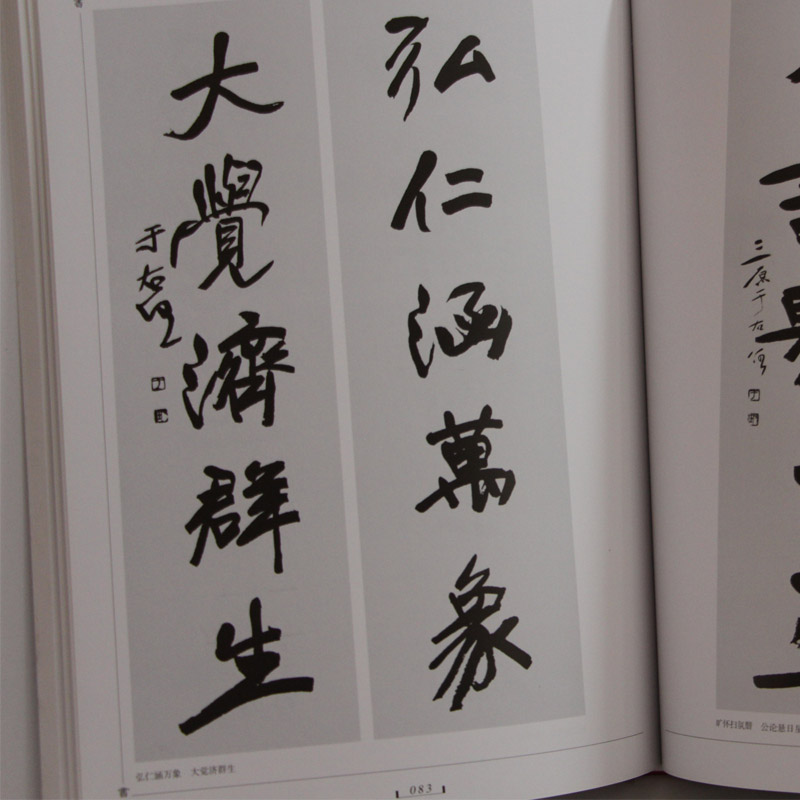 弘仁涵萬象
大覺濟群生
于右任
弘仁涵万象 大觉济群生
083
三原于右任
旷怀扫氛翳 公论悬日星